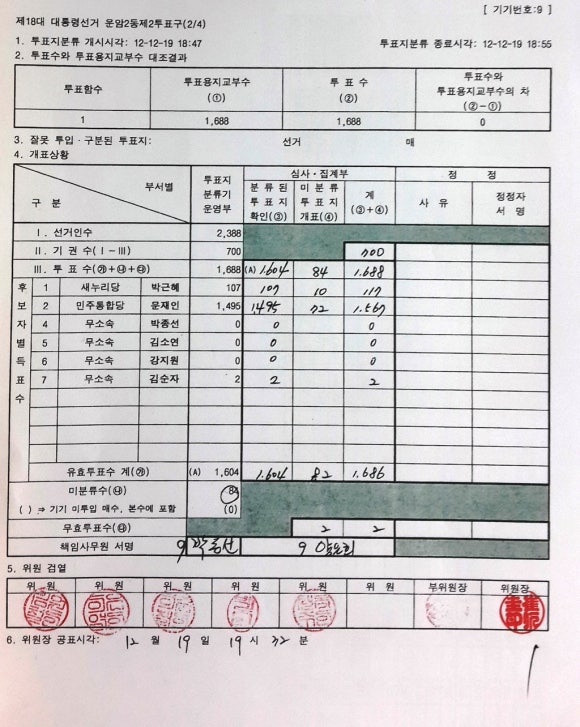 [ 기기번호:9 ]
제18대 대통령선거 운암2동제2투표구(2/4)
1. 투표지분류 개시시각: 12-12-19 18:47 투표지분류 종료시각: 12-12-19 18:55
2. 투표수와 투표용지교부수 대조결과
투표함수 투표용지교부수 (①) 투 표 수 (②) 투표수와 투표용지교부수의 차 (②-①)
1 1,688 1,688 0
3. 잘못 투입·구분된 투표지: 선거 매
4. 개표상황
구 분 부서별 투표지 분류기 운영부 심사·집계부 정 정
분 류 된 투 표 지 확인(③) 미 분 류 투 표 지 개표(④) 계 (③+④) 사 유 정정자 서 명
Ⅰ. 선거인수 2,388
Ⅱ. 기 권 수(Ⅰ-Ⅲ) 700 700
Ⅲ. 투 표 수(㉮+㉯+㉰) 1,688 (A) 1.604 84 1.688
후보자별득표수
1 새누리당 박근혜 107 107 10 117
2 민주통합당 문재인 1,495 1,495 72 1.567
4 무소속 박종선 0 0 0
5 무소속 김소연 0 0 0
6 무소속 강지원 0 0 0
7 무소속 김순자 2 2 2
유효투표수 계(㉮) (A) 1,604 1.604 82 1.686
미분류수(㉯) 84
( ) ⇒ 기기 미투입 매수, 본수에 포함 (0)
무효투표수(㉰) 2 2
책임사무원 서명 9 9
5. 위원 검열
위 원 위 원 위 원 위 원 위 원 위 원 부위원장 위원장
6. 위원장 공표시각: 12 월 19 일 19 시 32 분